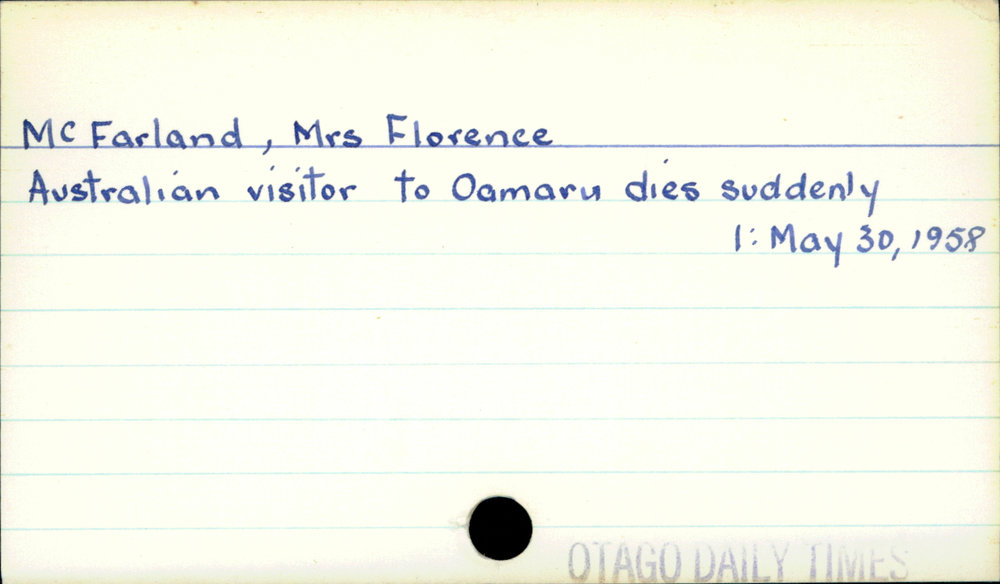 McFarland, Mrs Florence
Australian visitor to Oamaru dies suddenly
1: May 30, 1958
OTAGO DAILY TIMES